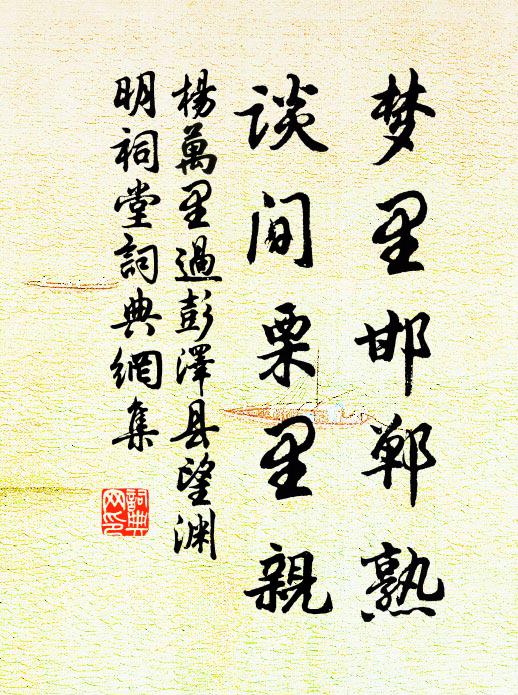 梦里邯郸熟
谈间栗里親
楊萬里過彭澤县望渊
明祠堂詞典網集
詞典
网印